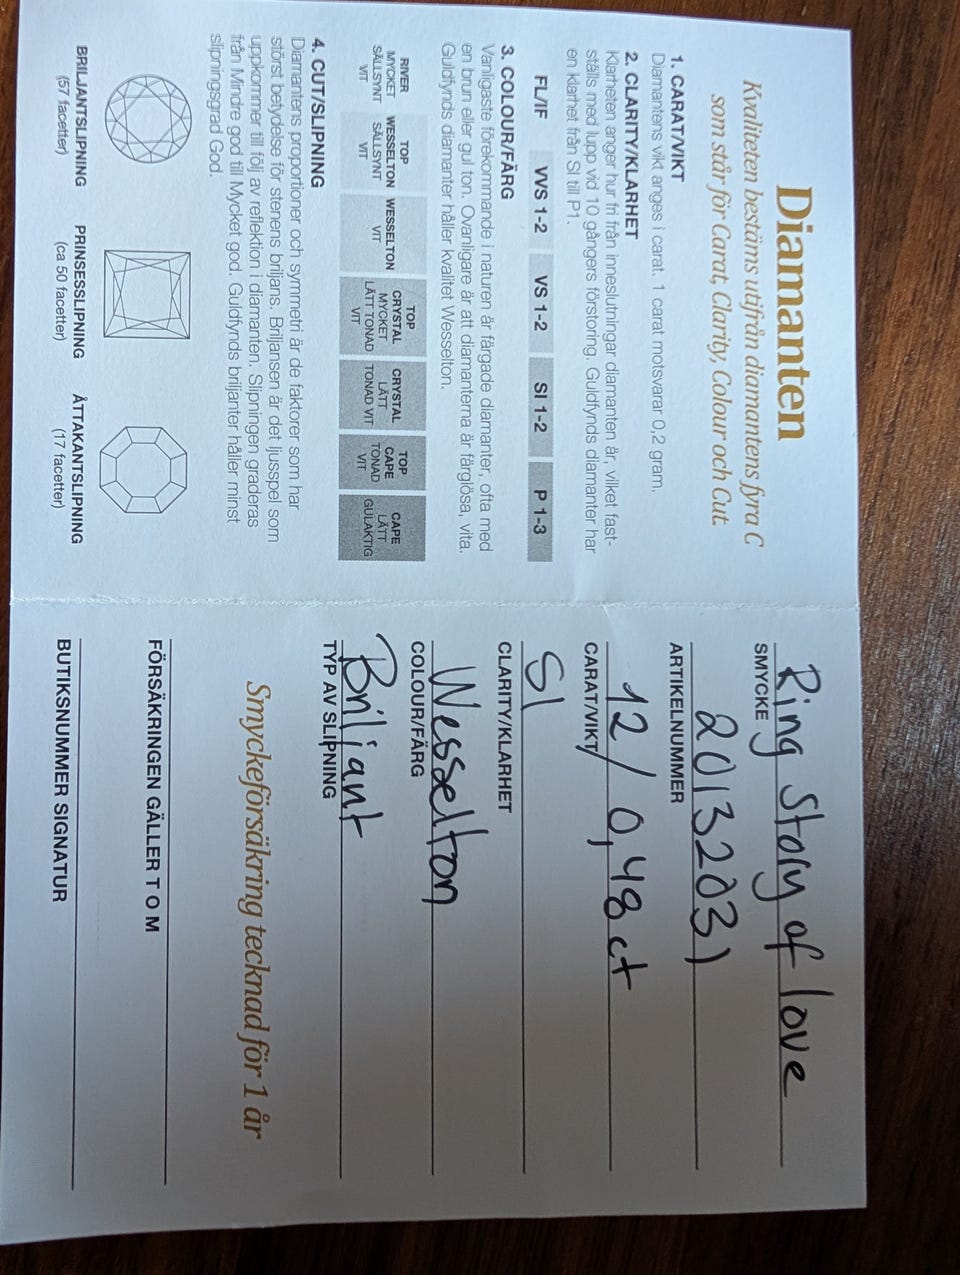 Diamanten
Kvaliteten bestäms utifrån diamantens fyra C
som står för Carat, Clarity, Colour och Cut.
1. CARAT/VIKT
Diamantens vikt anges i carat. 1 carat motsvarar 0,2 gram.
2. CLARITY/KLARHET
Klarheten anger hur fri från inneslutningar diamanten är, vilket fast-
ställs med lupp vid 10 gångers förstoring. Guldfynds diamanter har
en klarhet från SI till P1.
FL/IF VVS 1-2 VS 1-2 SI 1-2 P 1-3
3. COLOUR/FÄRG
Vanligaste förekommande i naturen är färgade diamanter, ofta med
en brun eller gul ton. Ovanligare är att diamanterna är färglösa, vita.
Guldfynds diamanter håller kvalitet Wesselton.
RIVER
MYCKET
SÄLLSYNT
VIT
TOP
WESSELTON
SÄLLSYNT
VIT
WESSELTON
VIT
TOP
CRYSTAL
MYCKET
LÄTT TONAD
VIT
CRYSTAL
LÄTT
TONAD VIT
TOP
CAPE
TONAD
VIT
CAPE
LÄTT
GULAKTIG
4. CUT/SLIPNING
Diamantens proportioner och symmetri är de faktorer som har
störst betydelse för stenens briljans. Briljansen är det ljusspel som
uppkommer till följ av reflektion i diamanten. Slipningen graderas
från Mindre god till Mycket god. Guldfynds briljanter håller minst
slipningsgrad God.
BRILJANTSLIPNING
(57 facetter)
PRINSESSLIPNING
(ca 50 facetter)
ÅTTAKANTSLIPNING
(17 facetter)
Ring Story of love
SMYCKE
20132031
ARTIKELNUMMER
12/ 0,48 ct
CARAT/VIKT
SI
CLARITY/KLARHET
Wesselton
COLOUR/FÄRG
Briljant
TYP AV SLIPNING
Smyckeförsäkring tecknad för 1 år
FÖRSÄKRINGEN GÄLLER T O M
BUTIKSNUMMER SIGNATUR